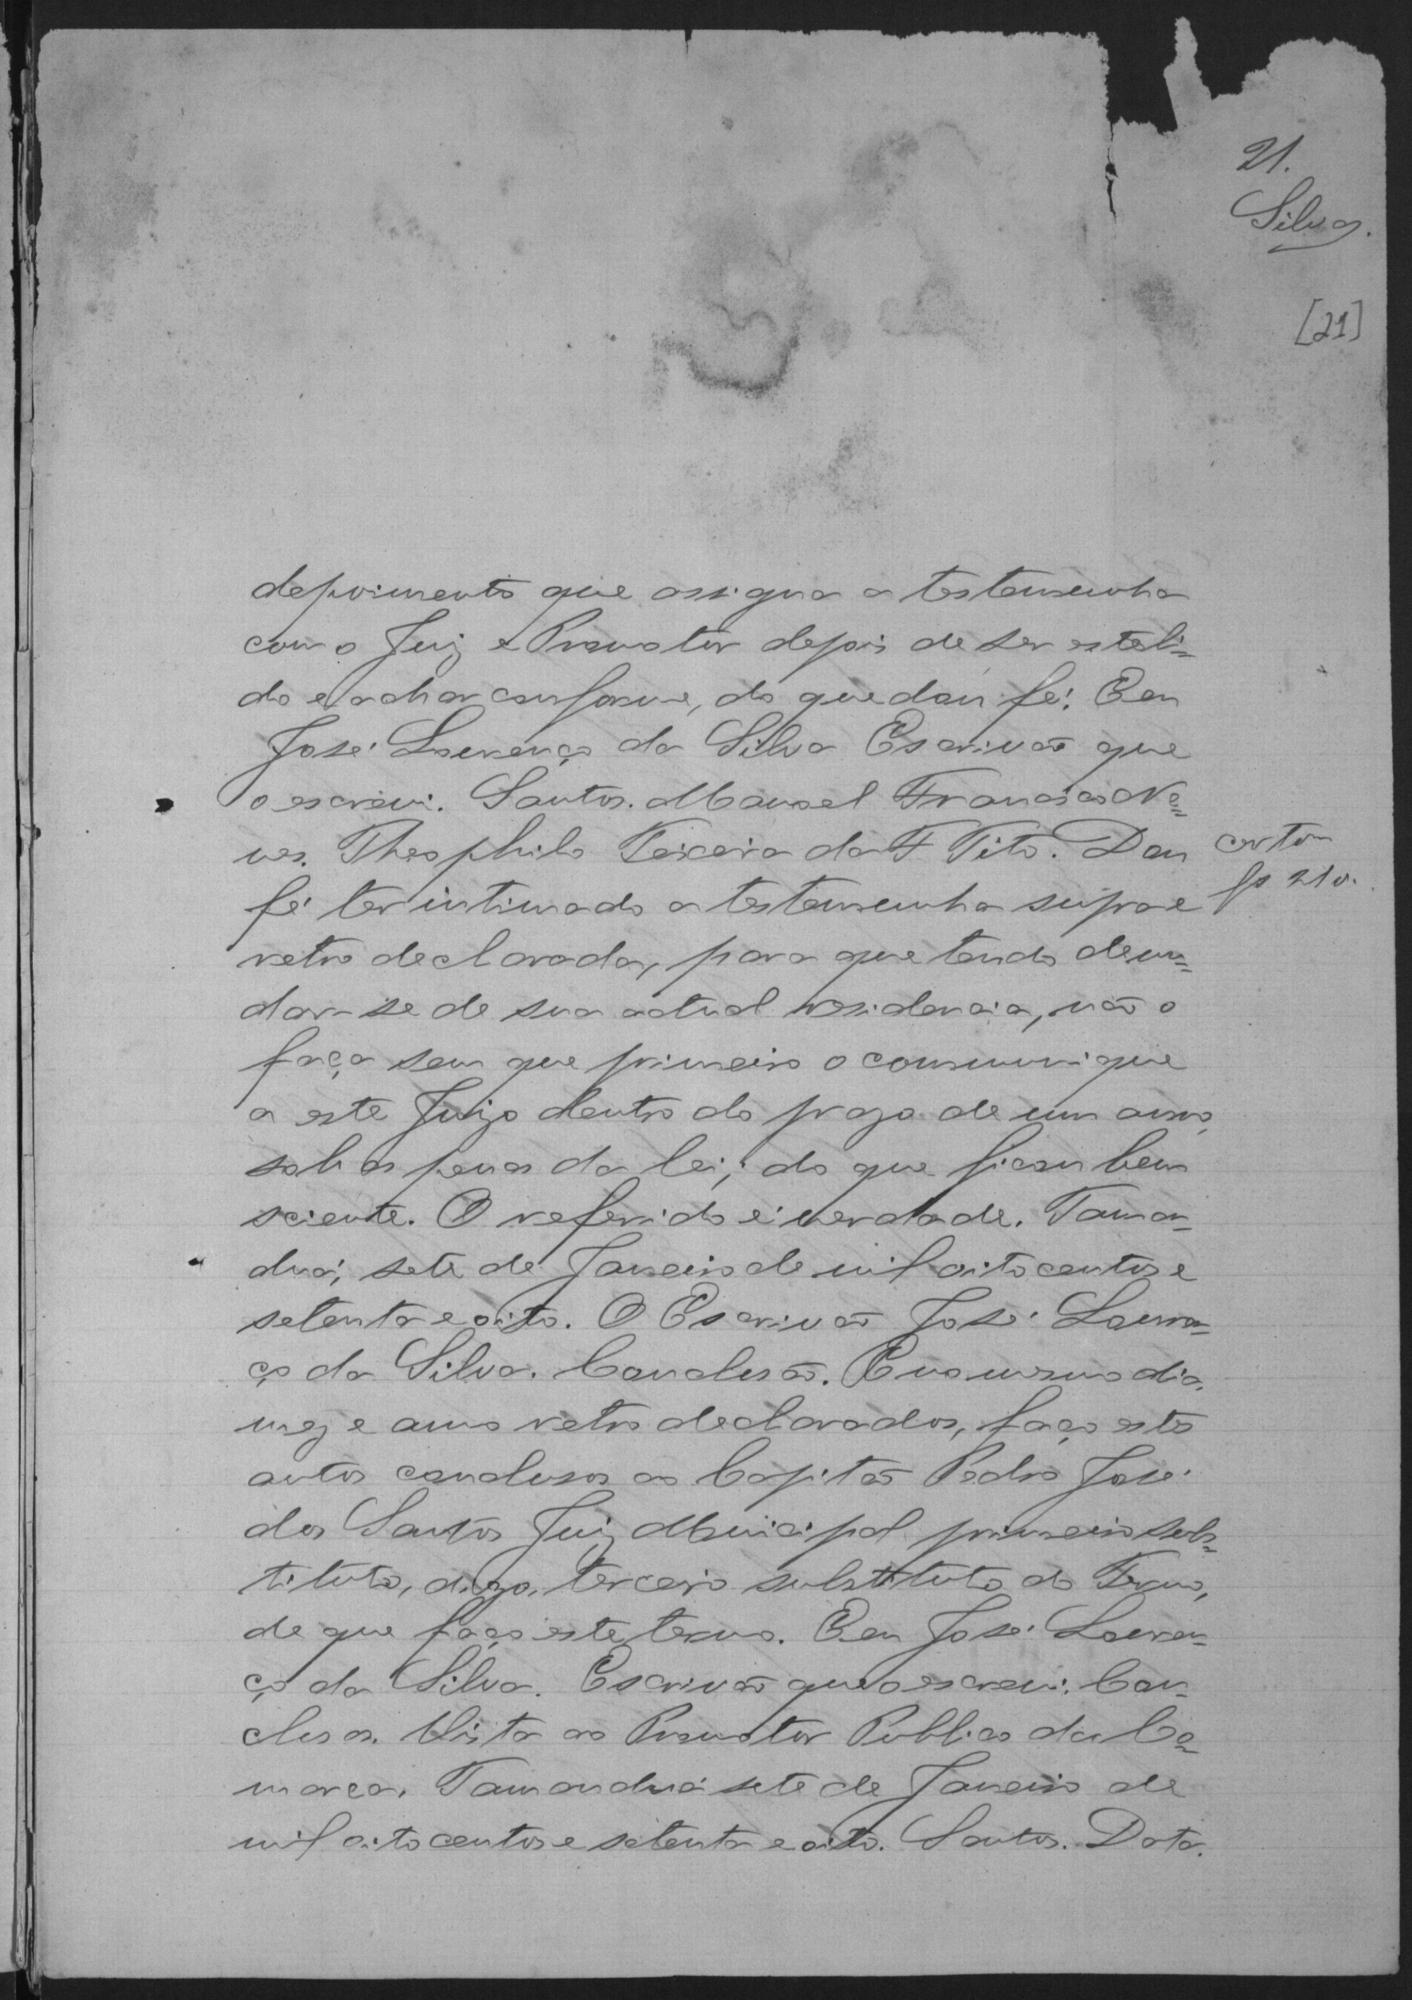 21.
Silva.
[21]
depoimento que assigna a testemunha
com o Juiz e Promotor depois de ser este li=
do e achar conforme, do que dou fé. Eu
José Lourenço da Silva Escrivão que
o escrevi. Santos. Manoel Francisco Ne=
ves. Theophilo Teixeira da F Tito. Dou
fé ter intimado a testemunha supra e
retro declarada, para que tendo de mu=
dar-se de sua actual residencia, não o
faça sem que primeiro o communique
a este Juizo dentro do prazo de um anno,
sob as penas da lei; do que ficou bem
sciente. O referido é verdade. Taman-
duá, sete de Janeiro de mil oito centos e
setenta e oito. O Escrivão José Louren=
ço da Silva. Conclusão. E no mesmo dia,
mez e anno retro declarados, faço estes
autos conclusos ao Capitão Pedro José
dos Santos Juiz Municipal primeiro subs=
tituto, digo, terceiro substituto do Termo,
de que faço este termo. Eu José Louren-
ço da Silva. Escrivão que o escrevi. Con-
clusos. Vista ao Promotor Publico da Co=
marca. Tamanduá sete de Janeiro de
mil oito centos e setenta e oito. Santos. Data.
fs 21 v.